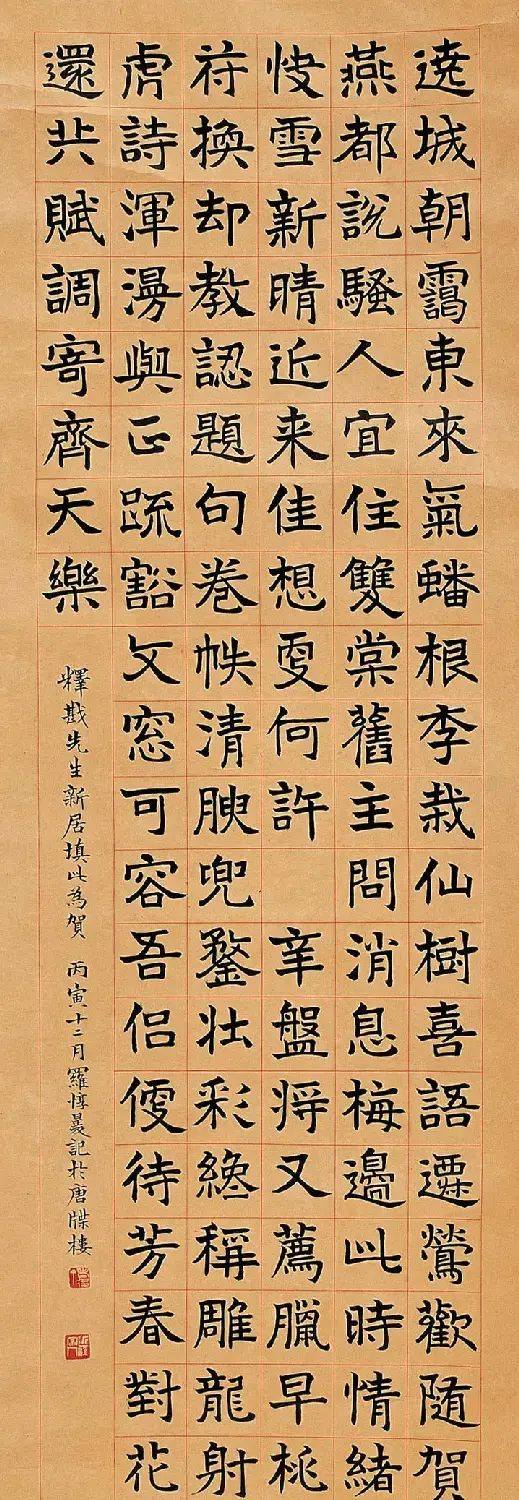 遶城朝靄東來氣蟠根李栽仙樹喜語遷鶯歡随賀
燕都說騷人宜住雙棠舊主問消息梅邊此時情緒
快雪新晴近来佳想更何許 辛盤将又薦臘早桃
符換却教認題句卷帙清腴兜鍪壮彩纔稱雕龍射
虎詩渾漫與正疏豁文窓可容吾侣便待芳春對花
還共賦調寄齊天樂
釋戡先生新居填此為賀 丙寅十二月羅惇㬊記於唐牒樓